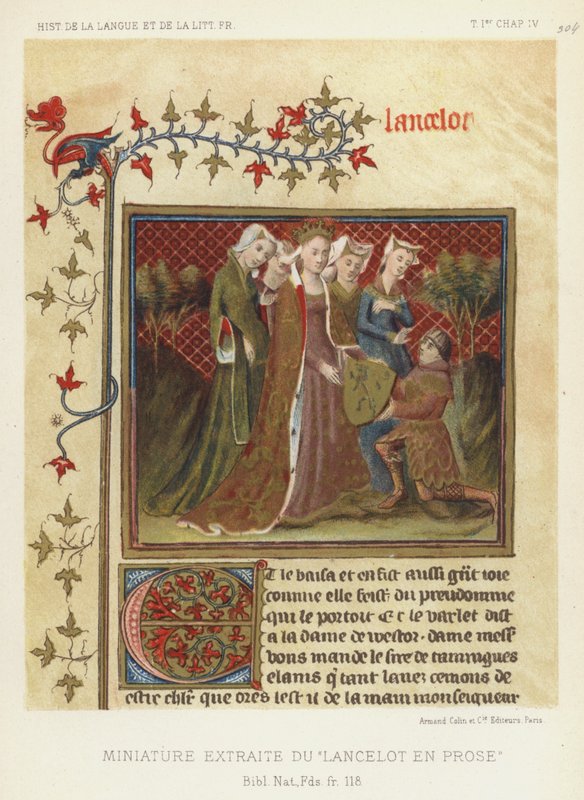 HIST. DE LA LANGUE ET DE LA LITT. FR.
T. Ier CHAP. IV
304
lancelot
Et le baisa et en fist aussi gñt ioie
comme elle feist du preudomme
qui le portoit Et le varlet dist
a la dame de
dame mess
vous mande le sire de
de
estre chlr que ores lest il de la main monseigneur
Armand Colin et Cie Editeurs. Paris.
MINIATURE EXTRAITE DU "LANCELOT EN PROSE"
Bibl. Nat., Fds. fr. 118